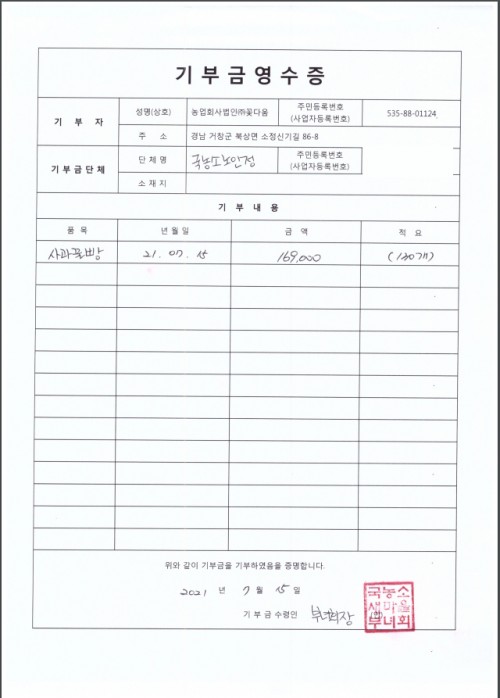 기부금영수증
기 부 자
성명(상호) 농업회사법인㈜꽃다움 주민등록번호 (사업자등록번호) 535-88-01124
주 소 경남 거창군 북상면 소정신기길 86-8
기부금단체
단 체 명 국농소노인정 주민등록번호 (사업자등록번호)
소 재 지
기 부 내 용
품 목 년 월 일 금 액 적 요
사과꿀빵 21. 07. 15 169,000 (130개)
위와 같이 기부금을 기부하였음을 증명합니다.
2021 년 7 월 15 일
기 부 금 수령인 부녀회장
국농소
새마을
부녀회